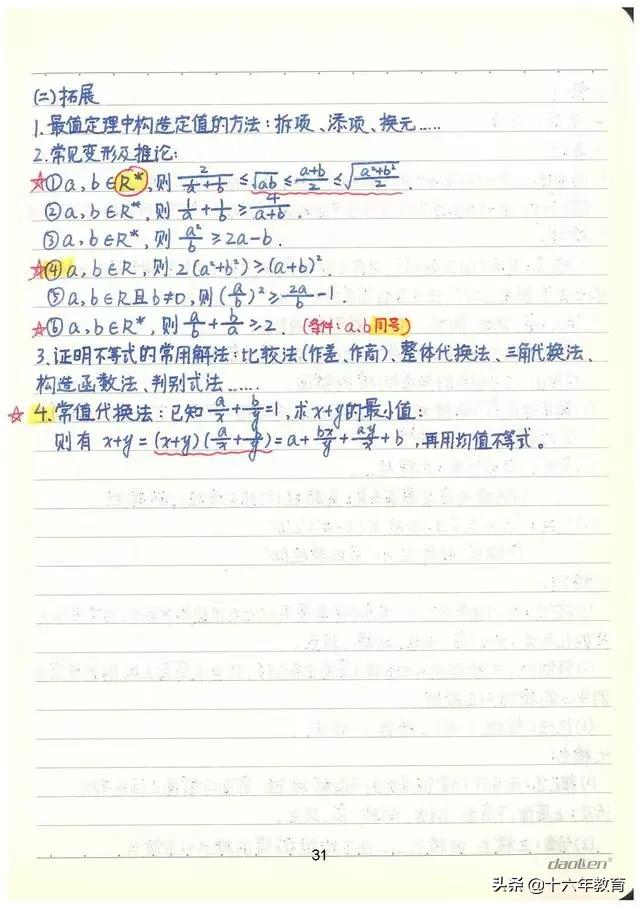 (二)拓展
1.最值定理中构造定值的方法:拆项、添项、换元……
2.常见变形及推论:
☆①a,b∈R*,则 2/(1/a+1/b) ≤ √ab ≤ (a+b)/2 ≤ √((a²+b²)/2).
②a,b∈R*,则 1/a+1/b ≥ 4/(a+b).
③a,b∈R*,则 a²/b ≥2a-b.
☆④a,b∈R,则 2(a²+b²)≥(a+b)².
⑤a,b∈R且b≠0,则(a/b)²≥2a/b-1.
☆⑥a,b∈R*,则 a/b+b/a≥2. (条件:a,b同号)
3.证明不等式的常用解法:比较法(作差、作商)、整体代换法、三角代换法、
构造函数法、判别式法……
☆4.常值代换法:已知a/x+b/y=1,求x+y的最小值:
则有 x+y=(x+y)(a/x+b/y)=a+bx/y+ay/x+b,再用均值不等式。
31
daoLen
头条@十六年教育